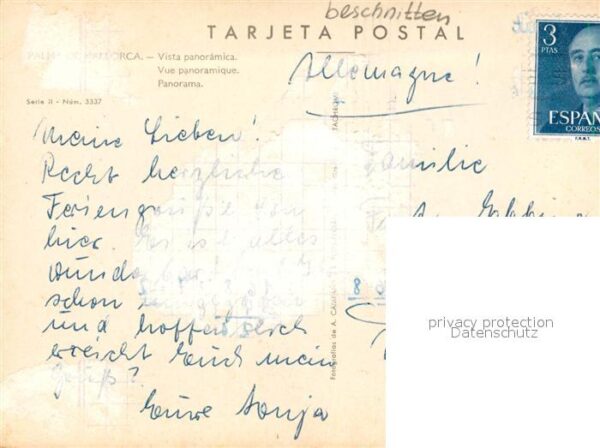 beschnitten
TARJETA POSTAL
PALMA DE MALLORCA. — Vista panorámica.
Vue panoramique.
Panorama.
Serie II - Núm. 3337
Allemagne!
3
PTAS
ESPAÑA
CORREOS
F.N.M.T.
Meine Lieben!
Recht herzliche
Feriengrüße von
hier. Es ist alles
wunderbar!
schon
und hoffentlich
erreicht Euch mein
Gruß?
Eure Sonja
Familie
Fotografias de A.
privacy protection
Datenschutz